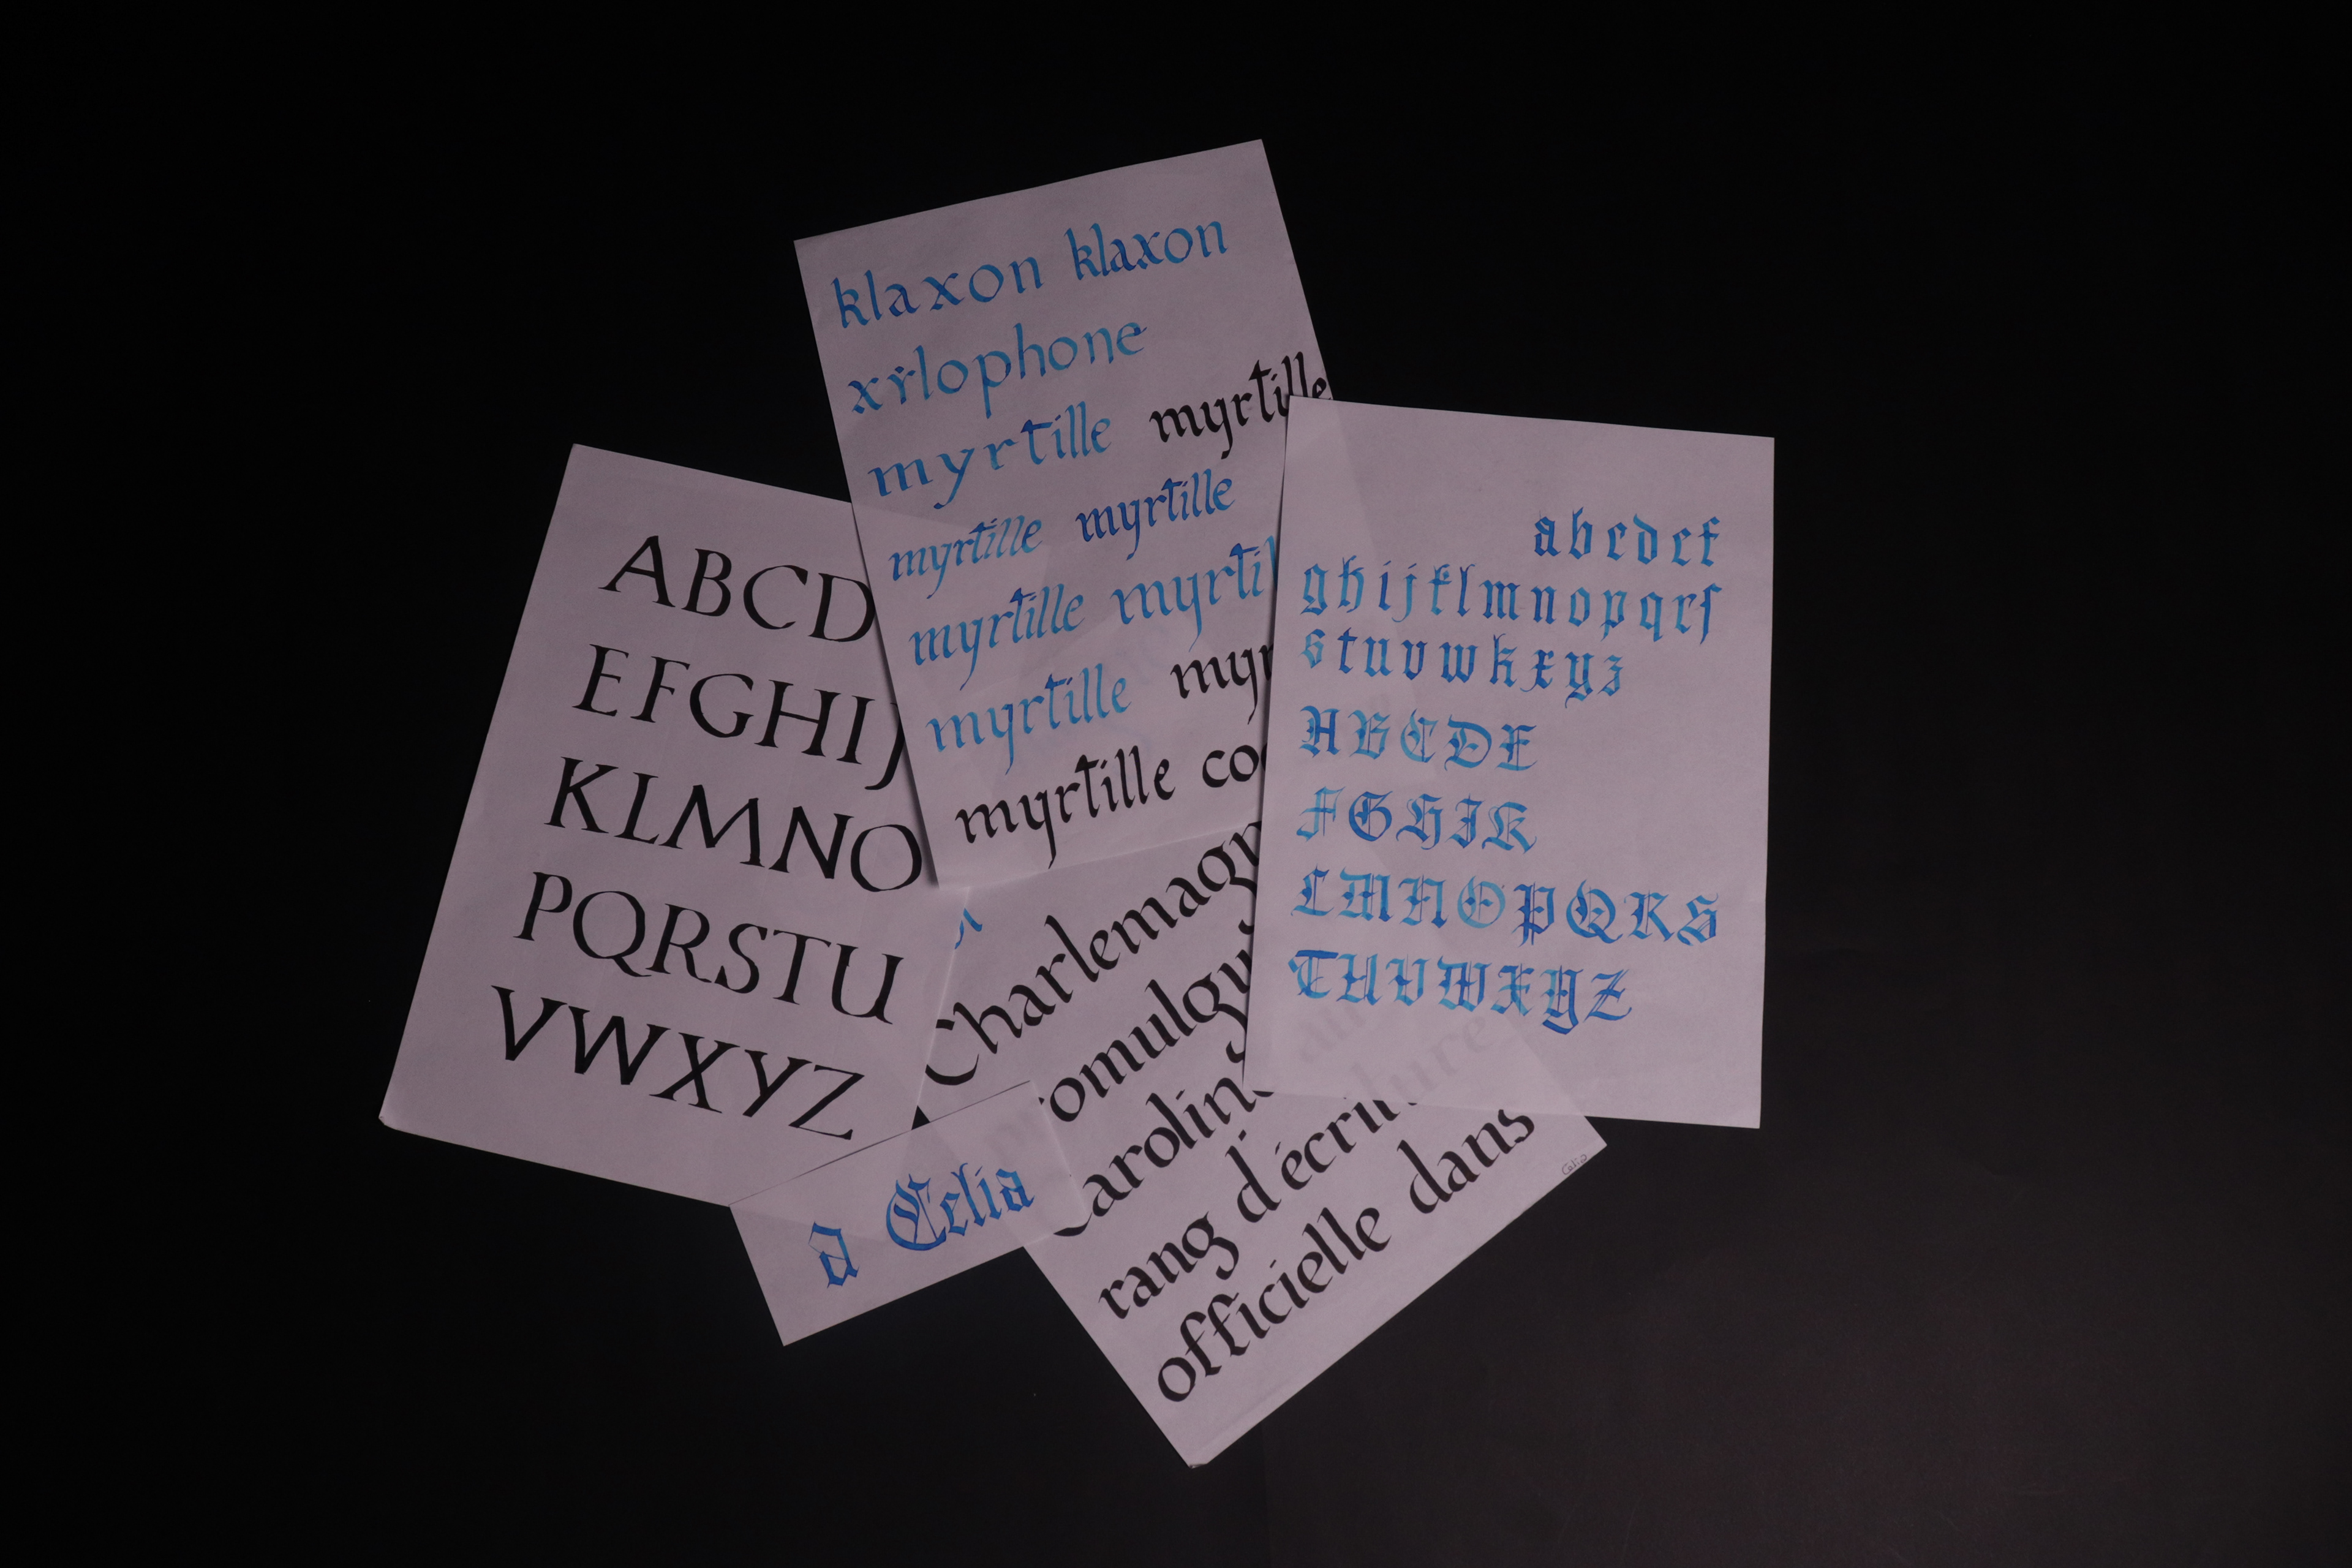 klaxon klaxon
xylophone
myrtille myrtille
myrtille myrtille
myrtille myrtil
myrtille myr
myrtille co
ABCD
EFGHIJ
KLMNO
PQRSTU
VWXYZ
abcdef
ghijklmnopqrſ
stuvwkxyz
ABCDE
FGHIK
LMNOPQRS
TUVWXYZ
Charlemagn
promulgu
Caroline au
rang d'écriture
officielle dans
Celia
a Celia